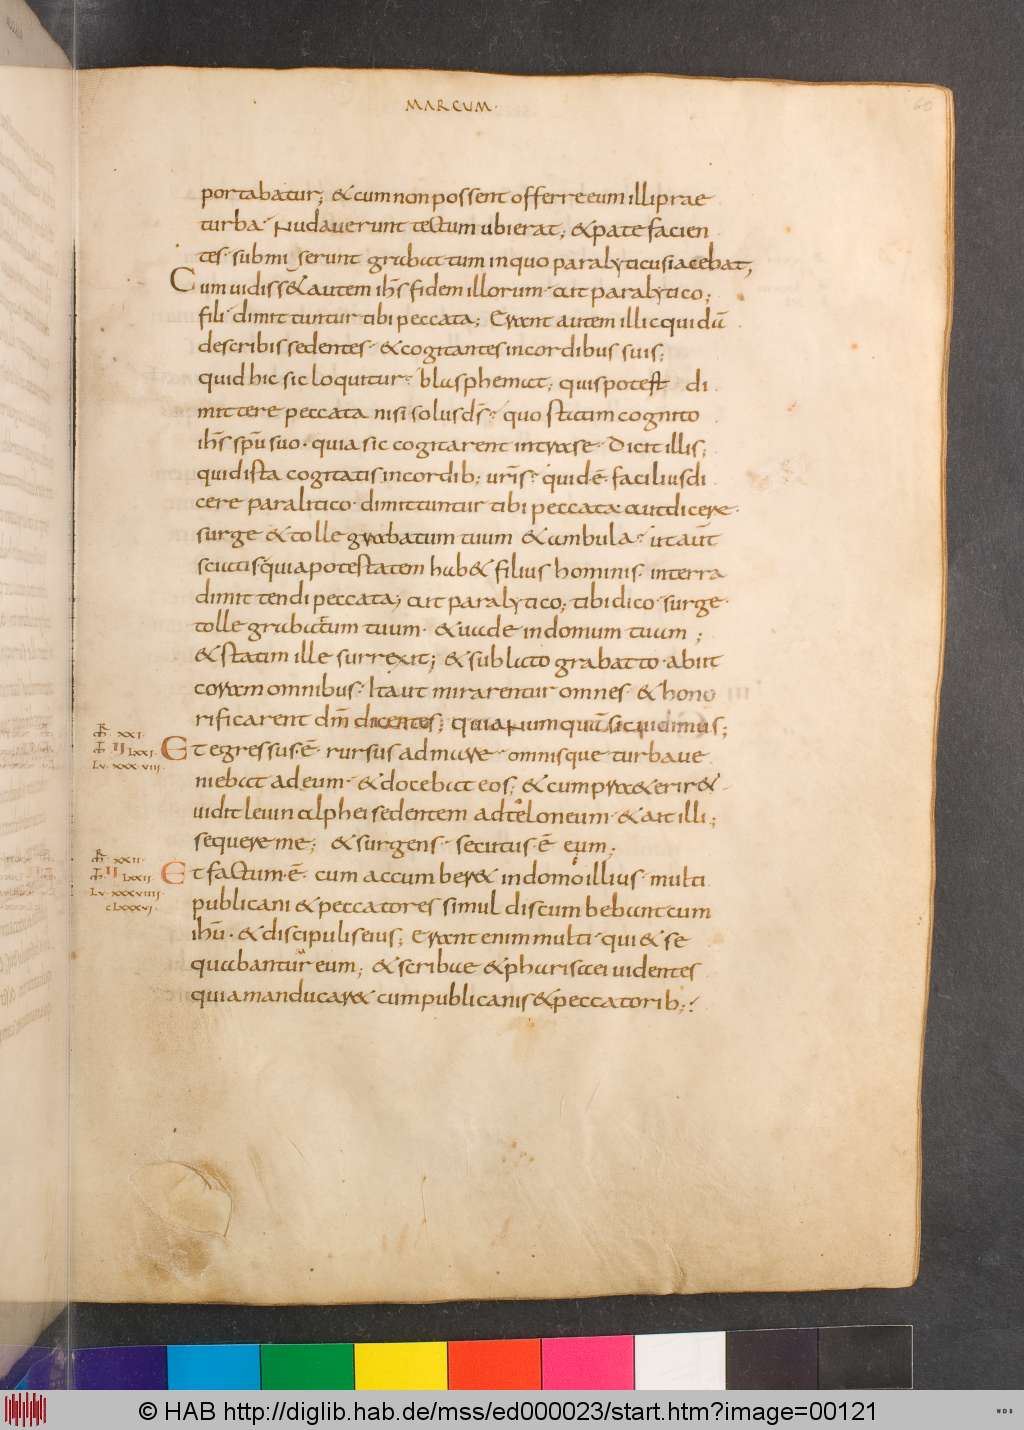 MARCUM·
60
portabatur; & cum non possent offerre eum illi prae
turba· Nudaverunt tectum ubi erat; & pate facien
tes· submiserunt grabattum in quo paralyticus iacebat;
Cum uidiss& autem ih̄s fidem illorum· ait paralytico;
fili· dimittuntur tibi peccata; Erant autem illic quidā
de scribis sedentes· & cogitantes in cordibus suis;
quid hic sic loquitur? blasphemat; quis potest di
mittere peccata nisi solus d̄s? quo statim cognito
ih̄s sp̄u suo· quia sic cogitarent intra se· Dicit illis;
quid ista cogitatis in cordib; ur̄is? quid·ē· facilius di
cere paralitico· dimittuntur tibi peccata aut dicere·
surge & tolle grabatum tuum & ambula? ut aūt
sciatis quia potestatem hab& filius hominis· in terra
dimittendi peccata; ait paralytico; tibi dico· surge·
tolle grabattum tuum· & uade in domum tuam;
& statim ille surrexit; & sublato grabatto· abiit
coram omnibus· Ita ut mirarentur omnes· & hono
rificarent dm̄ dicentes; quia Numquā sic uidimus;
R̄ XXI·
II LXXI·
Lu· XXXVIII·
Et egressus·ē· rursus ad mare· omnisque turba ue
niebat ad eum· & docebat eos; & cum praeterir&·
uidit leuin alphei sedentem ad teloneum· & ait illi;
sequere me; & surgens· secutus·ē eum;
R̄ XXII·
II LXXII·
Lu· XXXVIIII·
CLXXXVI·
Et factum·ē· cum accumber& in domo illius· multi
publicani & peccatores simul discumbebant cum
ihū· & discipulis eius; Erant enim multi· qui & se
quabantur eum; & scribae & pharisaei uidentes
quia manducar& cum publicanis & peccatorib;·?
© HAB http://diglib.hab.de/mss/ed000023/start.htm?image=00121
WDB